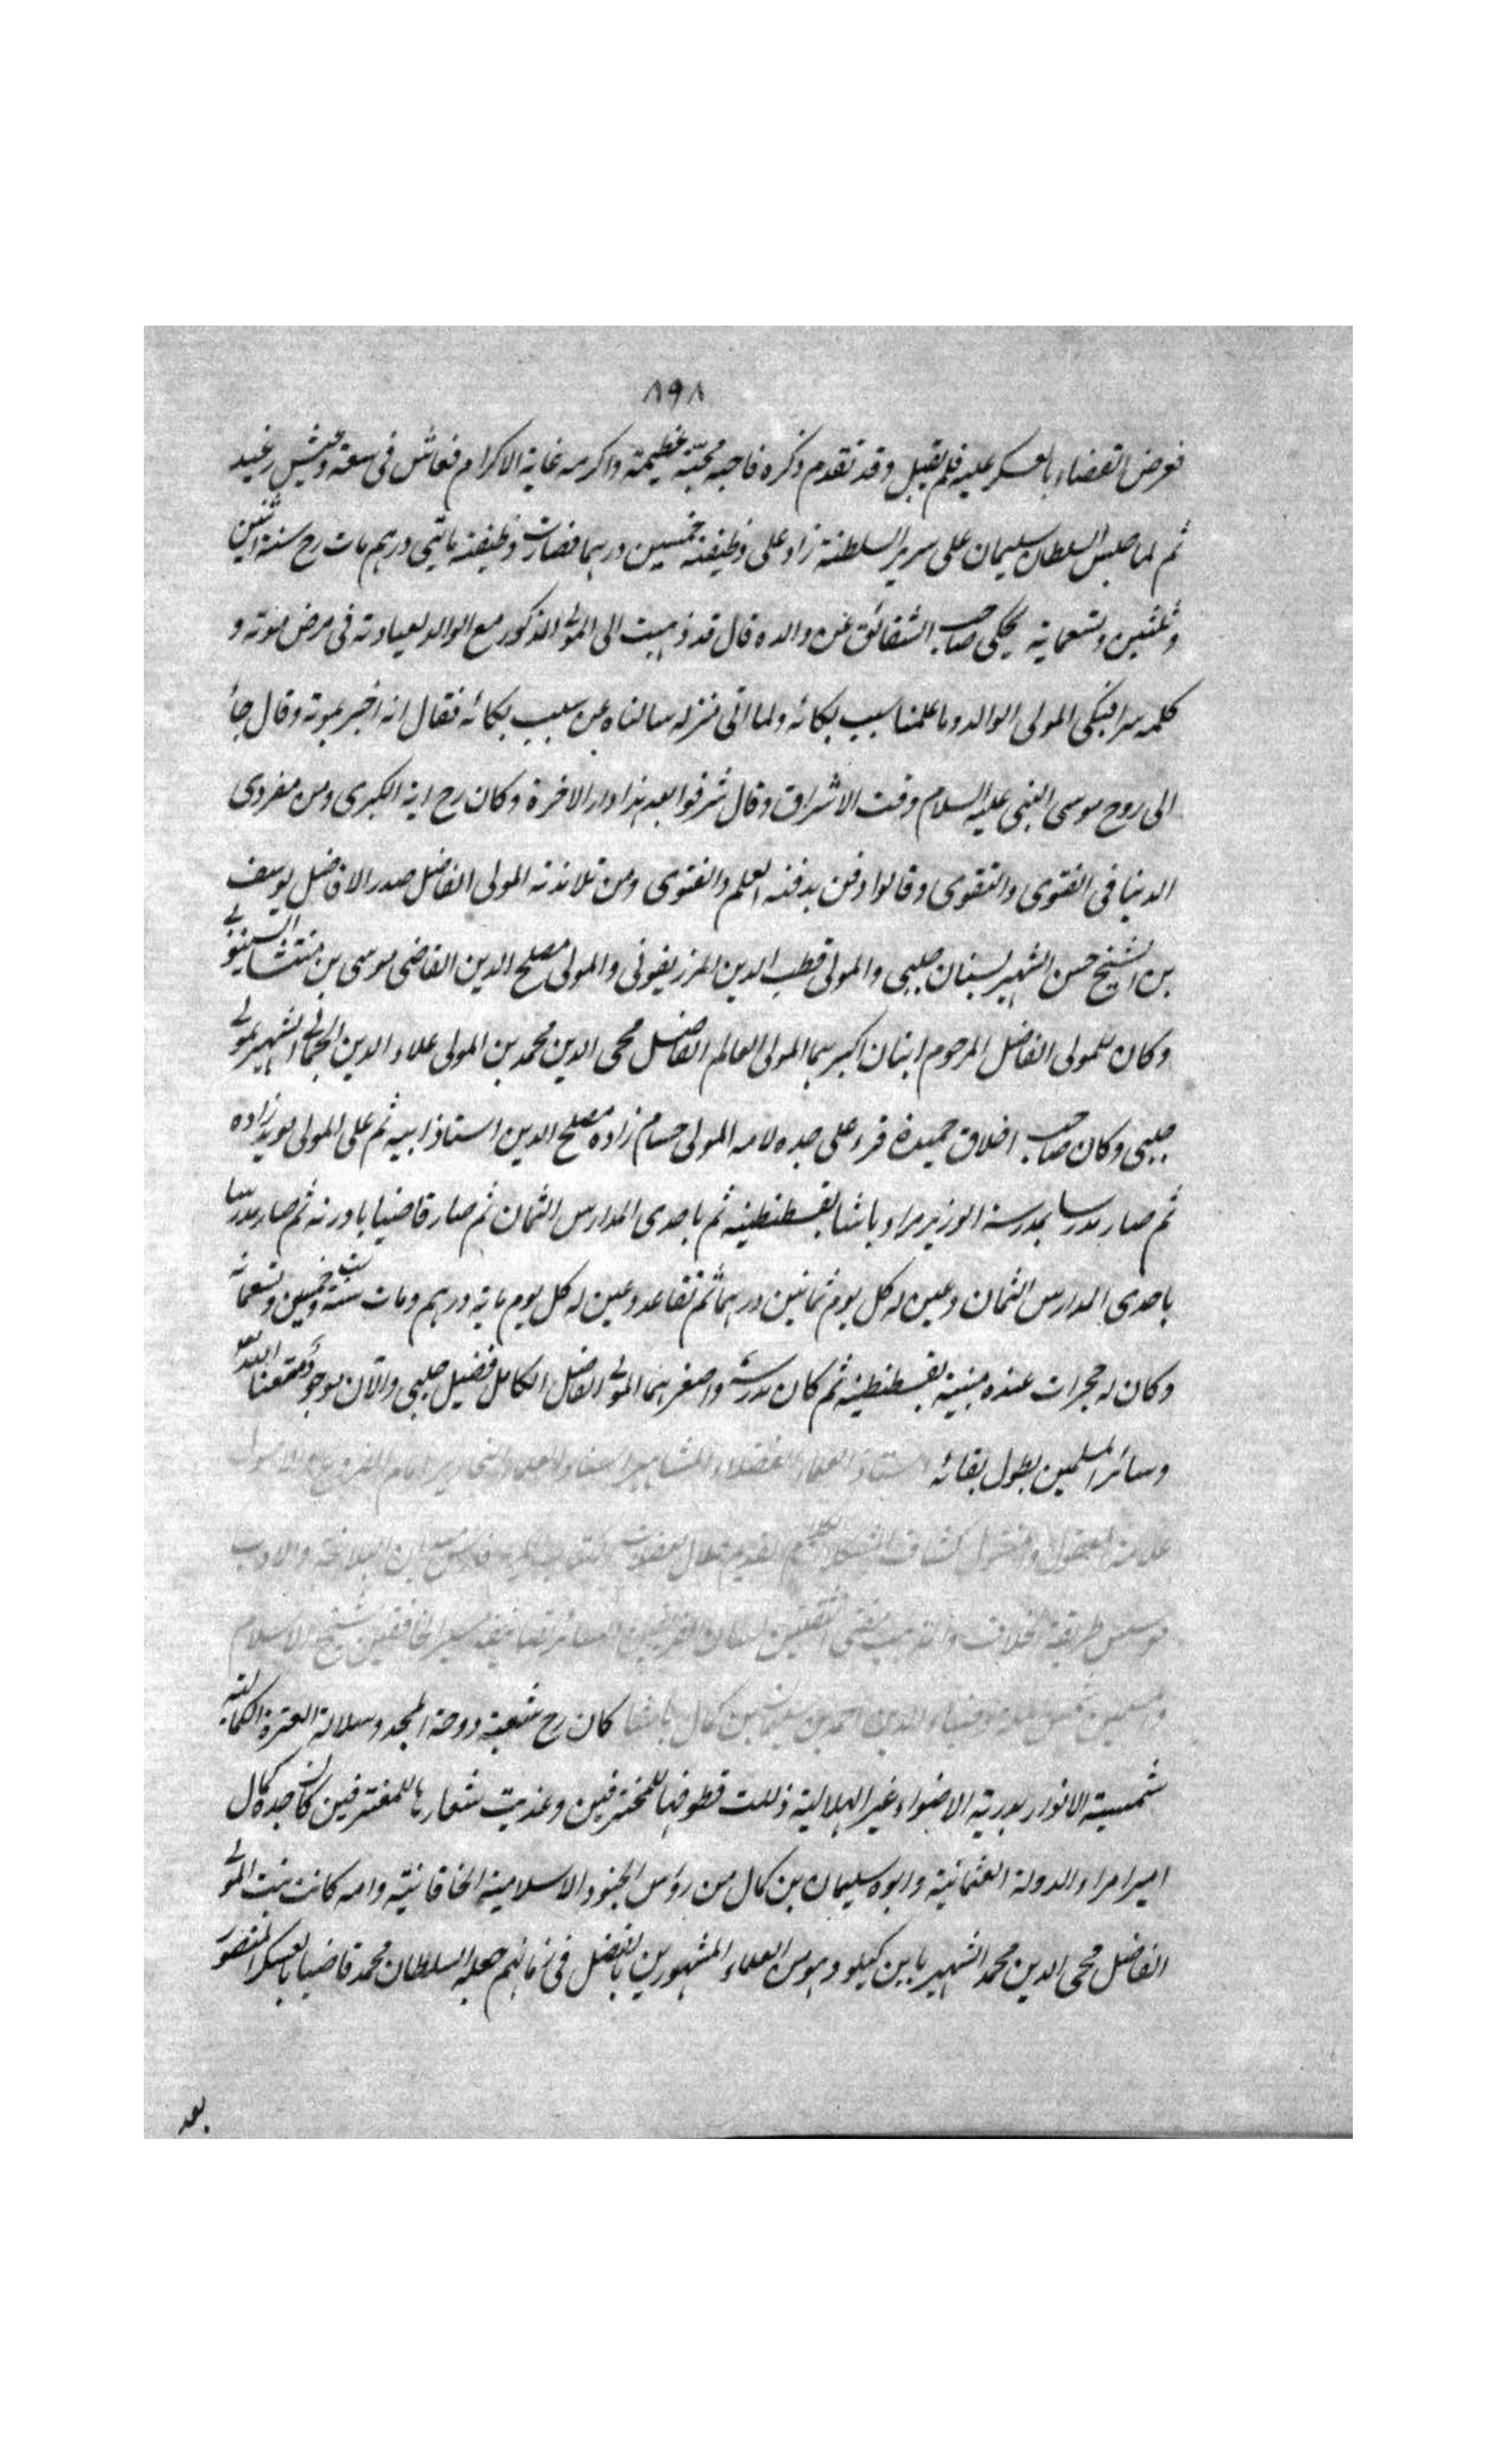 ٨٩٨
فوض القضاء بالعسكر عليه فلم يقبل وقد تقدم ذكره فاحبه محبة عظيمة واكرمه غاية الاكرام فعاش فى سعة وعيش رغيد
ثم لما جلس السلطان سليمان على سرير السلطنة زاد على وظيفته خمسين درهما فصارت وظيفته مايتى درهم مات رح سنة اثنتين
وثلثين وتسعماية يحكى صاحب الشقائق عن والده قال قد ذهبت الى المولى المذكور مع الوالد لعيادته فى مرض موته و
كلمه سرا فبكى المولى الوالد وما علمنا سبب بكائه ولما اتى منزله سالناه عن سبب بكائه فقال انه اخبر بموته وقال جأ
الى روح موسى النبى عليه السلام وقت الاشراق وقال شرفوا بعد هذا دار الاخرة وكان رح اية الكبرى ومن مفردى
الدنيا فى الفتوى والتقوى وقالوا دفن بدفنه العلم والفتوى ومن تلامذته المولى الفاضل صدر الافاضل يوسف
بن الشيخ حسن الشهير بسنان چلبى والمولى قطب الدين المرزيفونى والمولى مصلح الدين القاضى موسى بن منتشا السينوبى
وكان للمولى الفاضل المرحوم ابنان اكبرهما المولى العالم الفاضل محى الدين محمد بن المولى علاء الدين الجمالى الشهير بمولى
چلبى وكان صاحب اخلاق حميدة قرء على جده لامه المولى حسام زاده مصلح الدين استاذ ابيه ثم على المولى مويد زاده
ثم صار مدرسا بمدرسة الوزير مراد باشا بقسطنطينيه ثم باحدى المدارس الثمان ثم صار قاضيا بادرنه ثم صار مدرسا
باحدى المدارس الثمان وعين له كل يوم ثمانين درهما ثم تقاعد وعين له كل يوم ماية درهم ومات سنة وخمسين وتسعمائه
وكان له حجرات عنده مبنية بقسطنطينيه ثم كان مدرسة واصغرهما المولى الفاضل الكامل فضيل چلبى والآن موجود متعنا الله
وسائر المسلمين بطول بقائه استاذ العلماء الفضلاء المشاهير استناد العلماء النحارير امام الفروع والاصول
علامة المعقول والمنقول كشاف المشكلات القديم حلال الكتاب الكريم فارس ميدان البلاغة والادب
موسس طريقة الخلاف والمذهب مفتى الثقلين السائر تصانيفه سير الخافقين شيخ الاسلام
والمسلمين شمس الملة وضياء الدين احمد بن سليمان بن كمال باشا كان رح شعبة دوحة المجد وسلالة العترة الكمالية
شمسية الانوار بدرية الاضواء غير الهلالية ذللت قطوفها للمخترفين وعذبت شعارها للمغترفين كان جده كمال
امير امراء الدولة العثمانية وابوه سليمان بن كمال من رؤس الجنود الاسلامية الخاقانية وامه كانت بنت المولى
الفاضل محى الدين محمد الشهير بابن كپلو وهو من العلماء المشهورين بالفضل فى زمانهم جعله السلطان محمد قاضيا بالعسكر المنصور
بعد